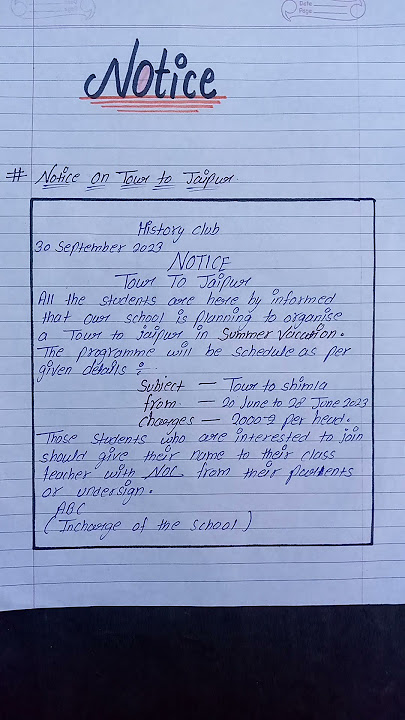 Date
Page
Notice
# Notice on Tour to Jaipur.
History club
30 September 2023
NOTICE
Tour To Jaipur
All the students are here by informed
that our school is planning to organise
a Tour to jaipur in Summer Vacation.
The programme will be schedule as per
given details :
Subject – Tour to shimla
from – 20 June to 28 June 2023
Charges – 2000-2 per head.
Those students who are interested to join
should give their name to their class
teacher with Noc from their parents
or undersign.
ABC
(Incharge of the school)